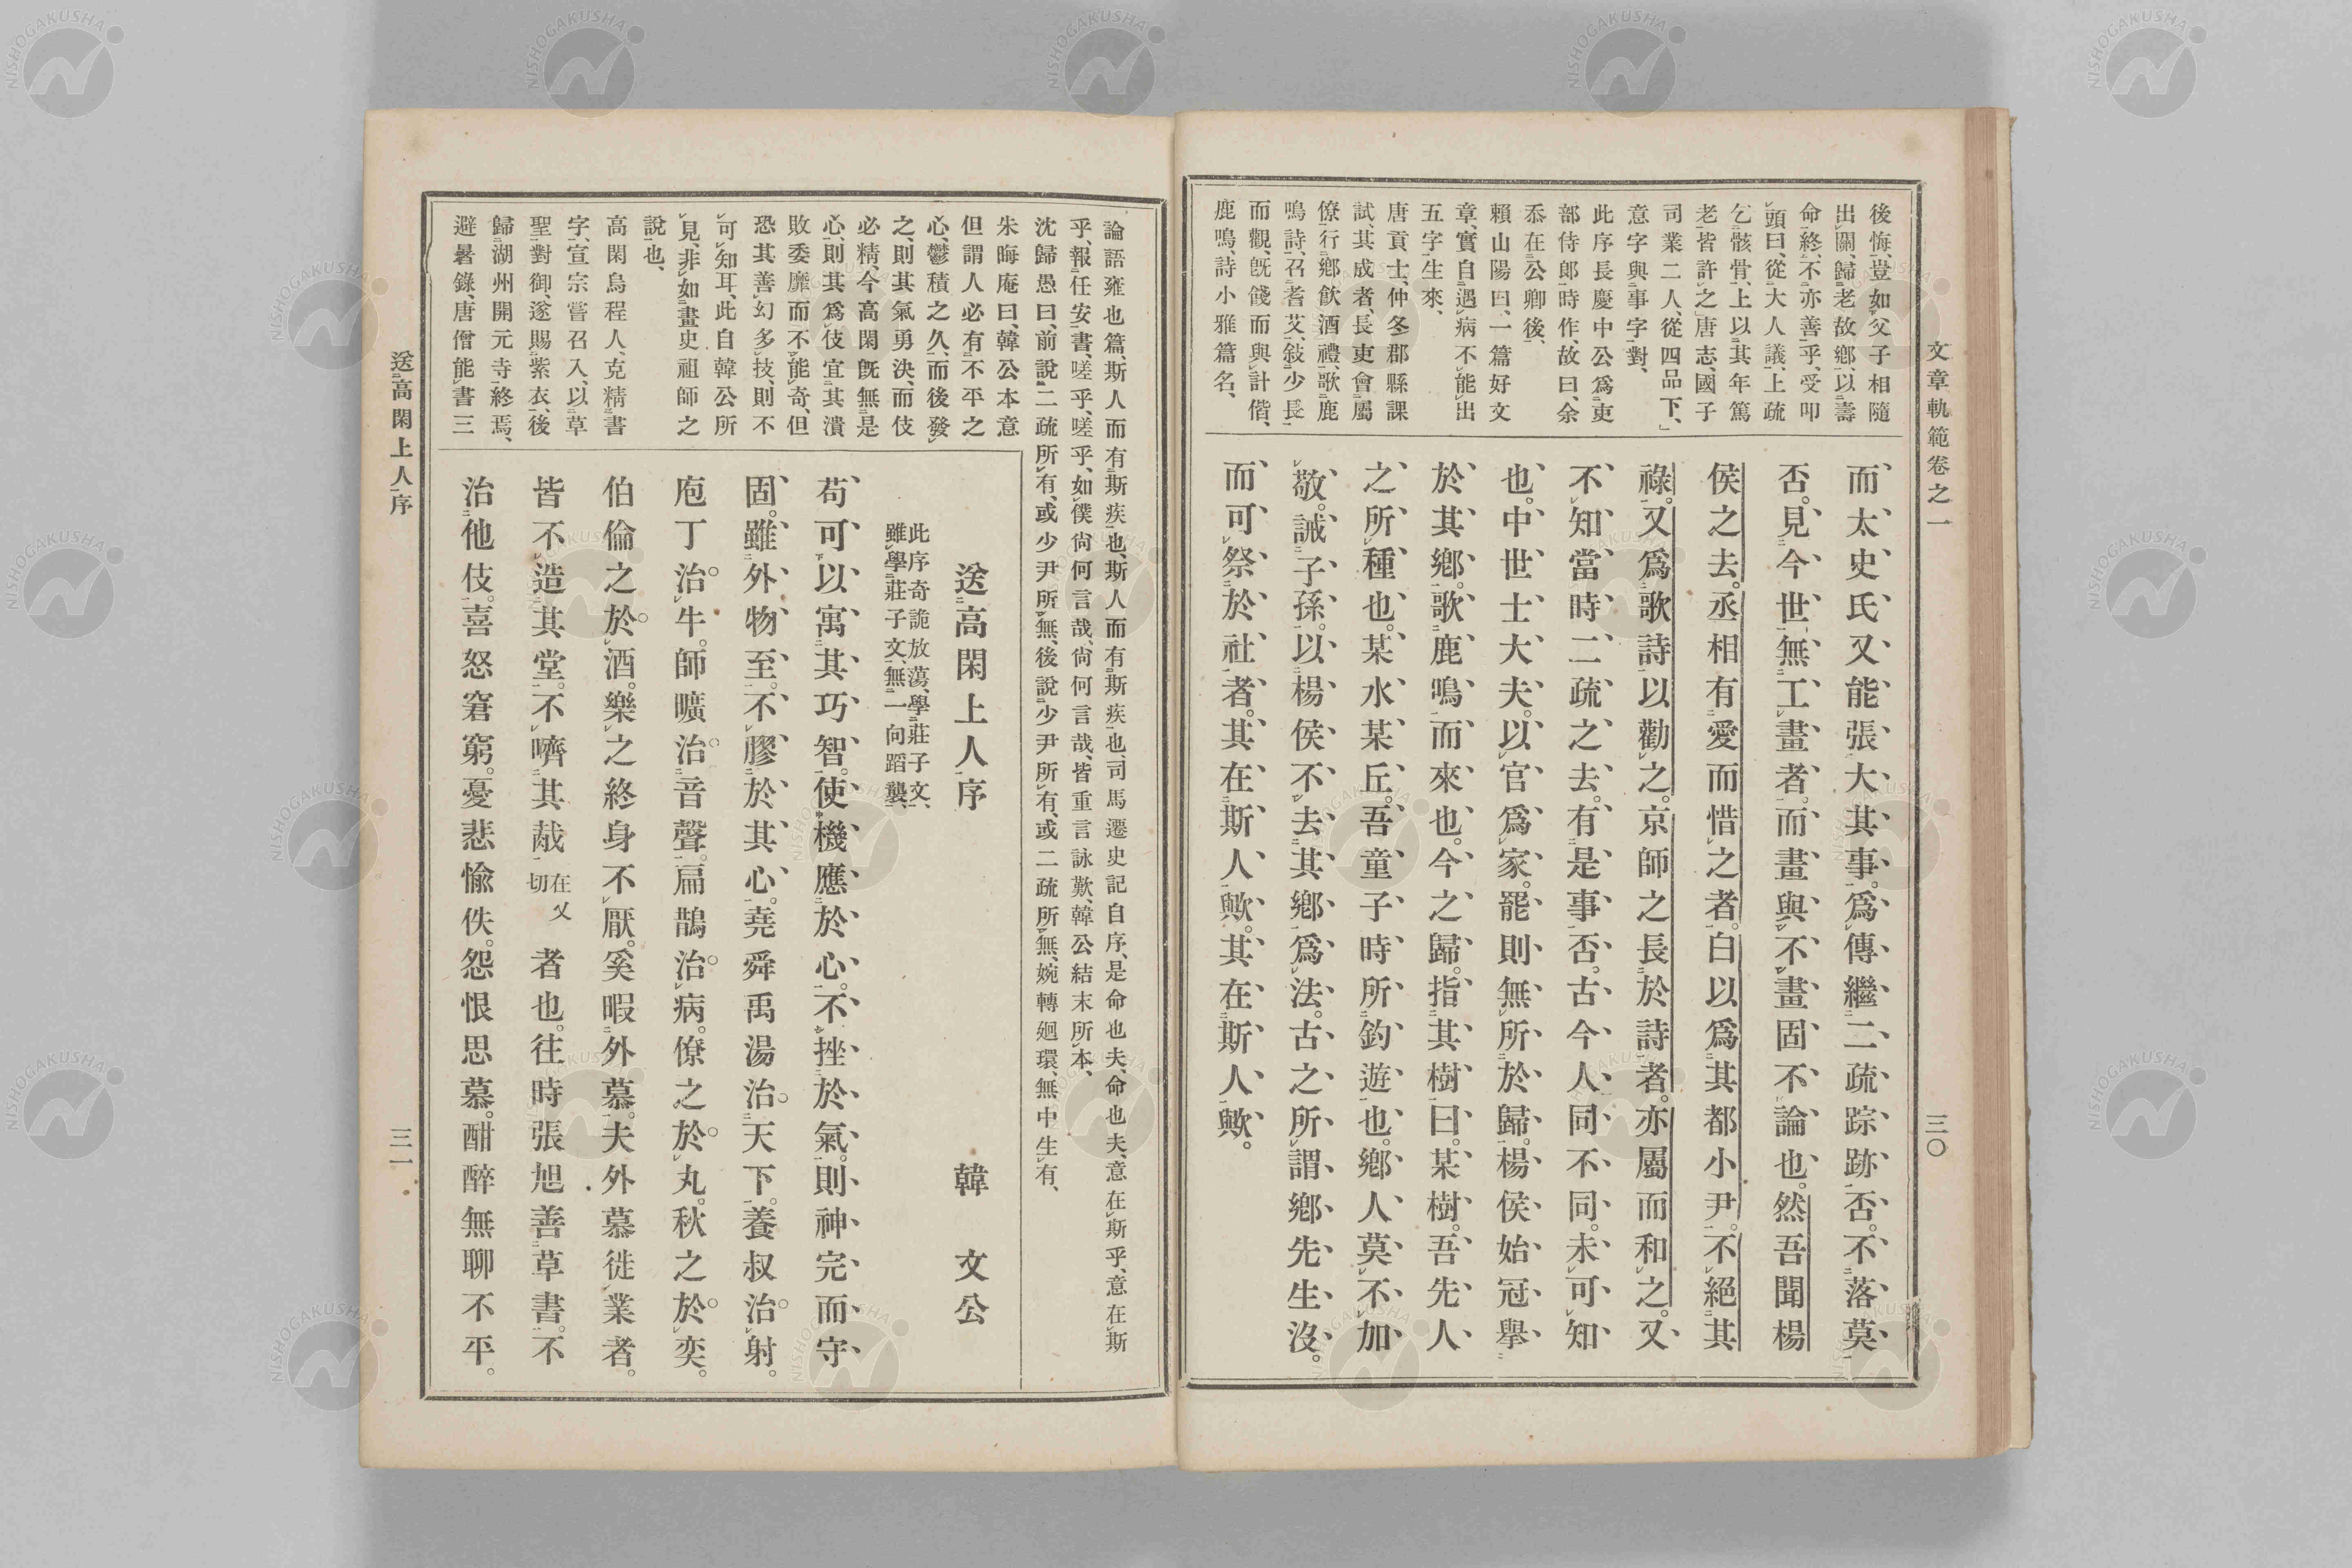 文章軌範卷之一
三〇
後悔、豈如父子相隨
出關、歸老故鄉、以壽
命終、不亦善乎、受叩
頭曰、從大人議、上疏
乞骸骨、上以其年篤
老、皆許之、唐志、國子
司業二人、從四品下、」
意字與事字對、
此序長慶中公爲吏
部侍郎時作、故曰、余
忝在公卿後、
賴山陽曰、一篇好文
章、實自遇病不能出
五字生來、
唐貢士、仲冬郡縣課
試、其成者、長吏會屬
僚、行鄉飮酒禮、歌鹿
鳴詩、召耆艾、敍少長
而觀、旣餞而與計偕、
鹿鳴、詩小雅篇名、
而太史氏又能張大其事。爲傳繼二疏踪跡否。不落莫
否。見今世無工畫者。而畫與不畫固不論也。然吾聞楊
侯之去。丞相有愛而惜之者。白以爲其都小尹。不絕其
祿。又爲歌詩以勸之。京師之長於詩者。亦屬而和之。又
不知當時二疏之去。有是事否。古今人同不同。未可知
也。中世士大夫。以官爲家。罷則無所於歸。楊侯始冠擧
於其鄉。歌鹿鳴而來也。今之歸。指其樹曰。某樹。吾先人
之所種也。某水某丘。吾童子時所釣遊也。鄉人莫不加
敬。誡子孫。以楊侯不去其鄉爲法。古之所謂鄉先生沒。
而可祭於社者。其在斯人歟。其在斯人歟。
論語雍也篇、斯人而有斯疾也、斯人而有斯疾也、司馬遷史記自序、是命也夫、命也夫、意在斯乎、意在斯
乎、報任安書、嗟乎、嗟乎、如僕尙何言哉、尙何言哉、皆重言詠歎、韓公結末所本、
沈歸愚曰、前說二疏所有、或少尹所無、後說少尹所有、或二疏所無、婉轉廻環、無中生有、
朱晦庵曰、韓公本意
但謂人必有不平之
心、鬱積之久、而後發
之、則其氣勇決、而伎
必精、今高閑旣無是
心、則其爲伎宜其潰
敗委靡而不能奇、但
恐其善幻多技、則不
可知耳、此自韓公所
見、非如畫史祖師之
說也、
高閑烏程人、克精書
字、宣宗嘗召入、以草
聖對御、遂賜紫衣、後
歸湖州開元寺終焉、
避暑錄、唐僧能書三
送高閑上人序　韓文公
此序奇詭放蕩、學莊子文、
雖學莊子文、無一向蹈襲、
苟可以寓其巧智。使機應於心。不挫於氣。則神完而守
固。雖外物至。不膠於其心。堯舜禹湯治天下。養叔治射。
庖丁治牛。師曠治音聲。扁鵲治病。僚之於丸。秋之於奕。
伯倫之於酒。樂之終身不厭。奚暇外慕。夫外慕徙業者。
皆不造其堂。不嚌其胾在乂切者也。往時張旭善草書。不
治他伎。喜怒窘窮。憂悲愉佚。怨恨思慕。酣醉無聊不平。
送高閑上人序
三一